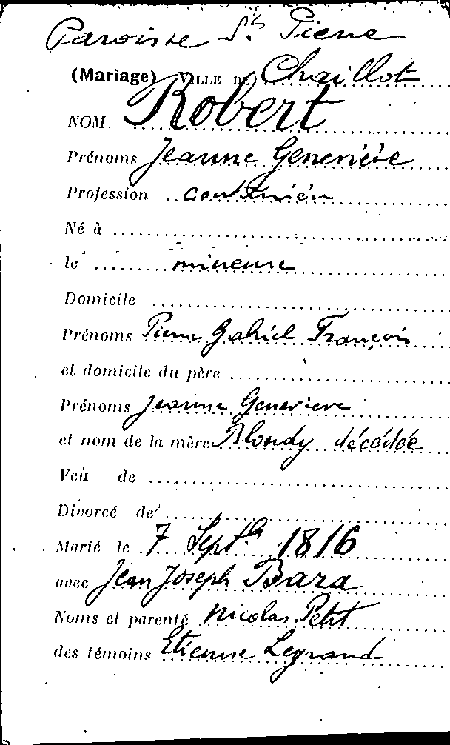 Paroisse St Pierre
(Mariage) VILLE DE Chaillot
NOM Robert
Prénoms Jeanne Geneviève
Profession couturière
Né à
le mineure
Domicile
Prénoms Pierre Gabriel François
et domicile du père
Prénoms Jeanne Geneviève
et nom de la mère Blondy décédée
Veu de
Divorcé de
Marié le 7 Septbre 1816
avec Jean Joseph Bara
Noms et parenté Nicolas Petit
des témoins Etienne Legrand